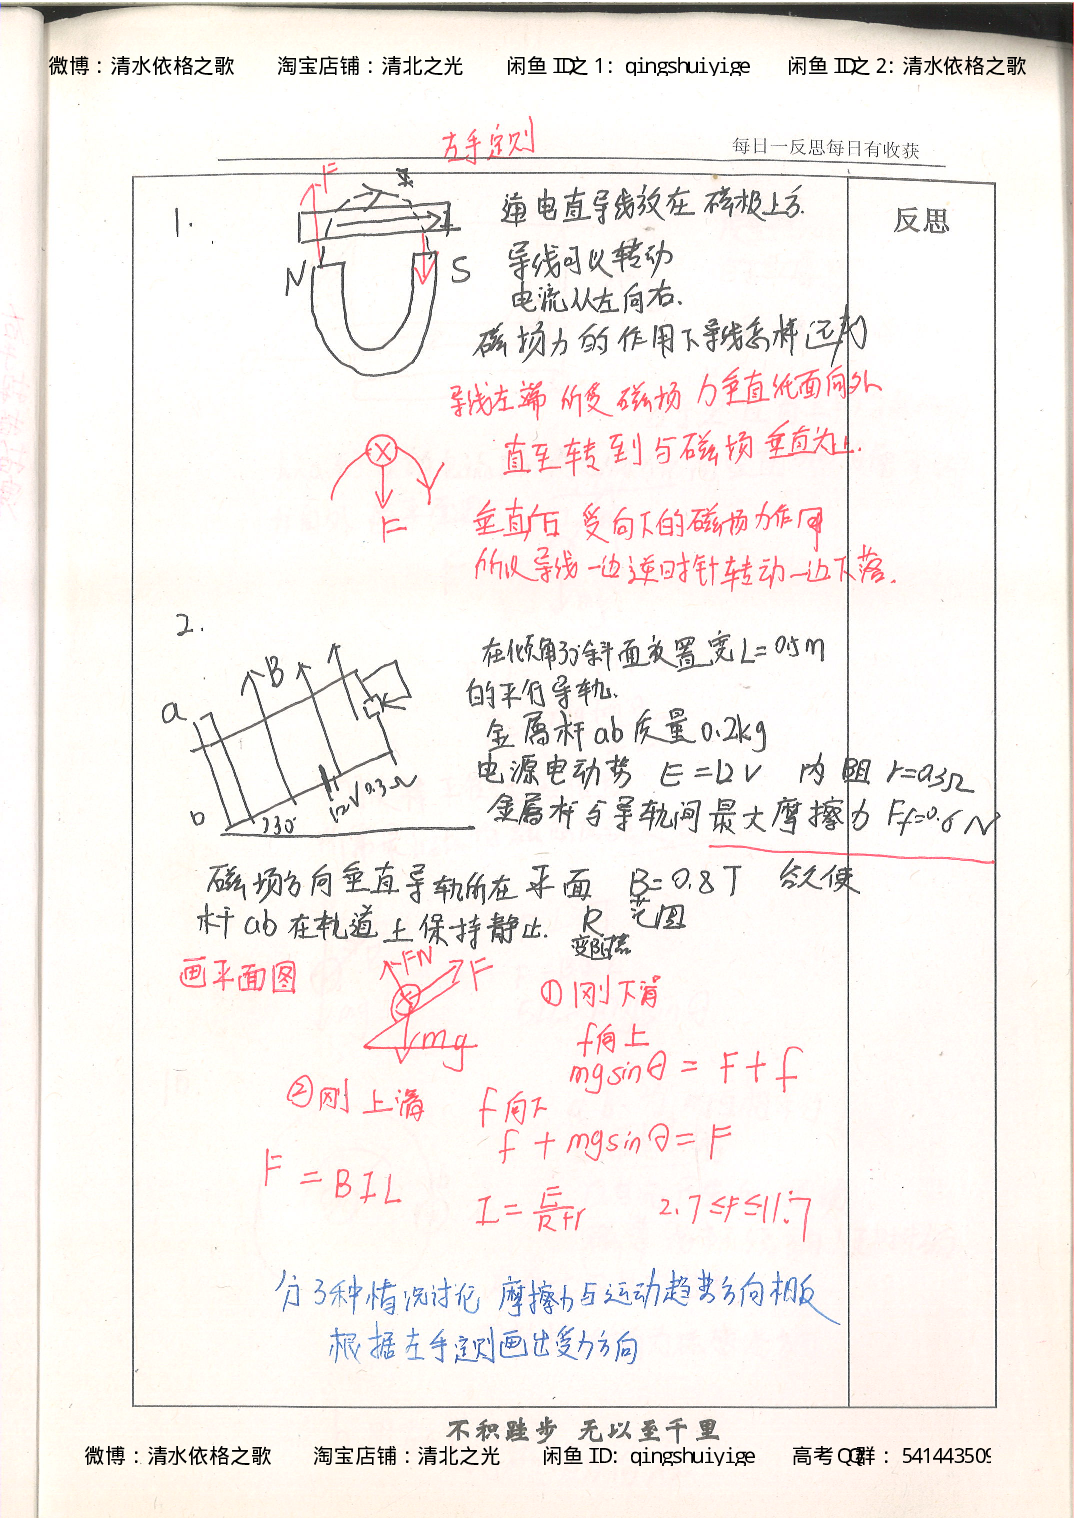 微博：清水依格之歌 淘宝店铺：清北之光 闲鱼 ID之 1：qingshuiyige 闲鱼 ID之 2：清水依格之歌
左手定则
每日一反思每日有收获
反思
1.
F
I
N
S
通电直导线放在磁极上方.
导线可以转动
电流从左向右.
磁场力的作用下导线怎样运动
导线左端所受磁场力垂直纸面向外
直至转到与磁场垂直为止.
F
垂直后受向下的磁场力作用
所以导线一边逆时针转动一边下落.
2.
a
B
b
30°
12V 0.3Ω
在倾角30°斜面放置宽L=0.5m
的平行导轨.
金属杆ab质量0.2kg
电源电动势 E=12V 内阻r=0.3Ω
金属杆与导轨间最大摩擦力 Ff=0.6N
磁场方向垂直导轨所在平面 B=0.8T 欲使
杆ab在轨道上保持静止. R 范围
变阻器
画平面图
FN
F
mg
①刚下滑
f向上
mgsinθ=F+f
②刚上滑 f向下
f+mgsinθ=F
F=BIL
I=E/R+r
2.7≤F≤11.7
分3种情况讨论 摩擦力与运动趋势方向相反
根据左手定则画出受力方向
不积跬步 无以至千里
微博：清水依格之歌 淘宝店铺：清北之光 闲鱼 ID：qingshuiyige 高考QQ群：541443509